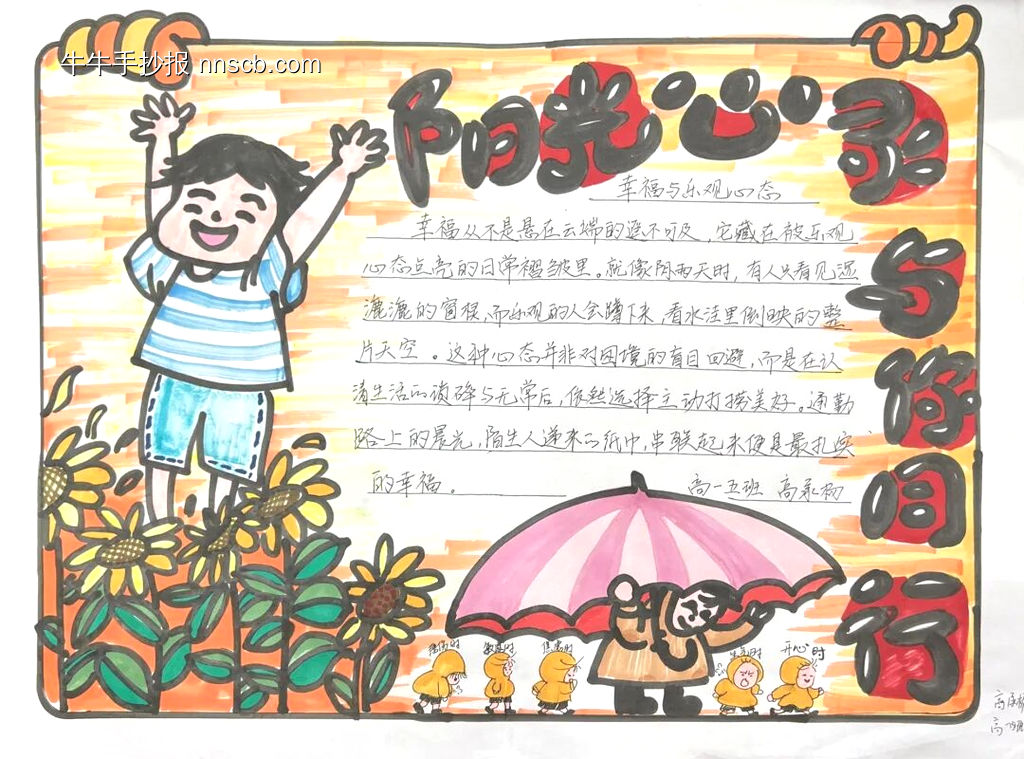 牛牛手抄报 nnscb.com
阳光心灵
与你同行
幸福与乐观心态
幸福从不是悬在云端的遥不可及，它藏在被乐观
心态点亮的日常褶皱里。就像阴雨天时，有人只看见湿
漉漉的窗棂，而乐观的人会蹲下来，看水洼里倒映的整
片天空。这种心态并非对困境的盲目回避，而是在认
清生活的琐碎与无常后，依然选择主动打捞美好。通勤
路上的晨光，陌生人递来的纸巾，串联起来便是最扎实
的幸福。
高一五班 高承
生气时
开心时